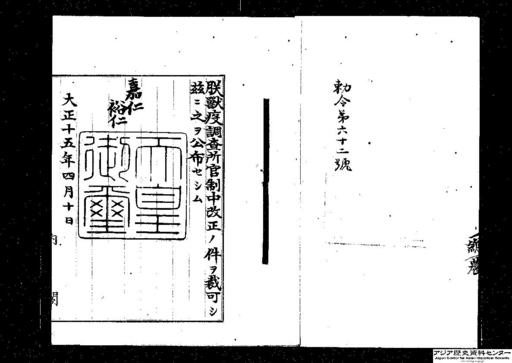 勅令第六十二號
朕獸疫調査所官制中改正ノ件ヲ裁可シ
茲ニ之ヲ公布セシム
嘉仁
裕仁
天皇御璽
大正十五年四月十日
内
閣
アジア歴史資料センター
Japan Center for Asian Historical Records